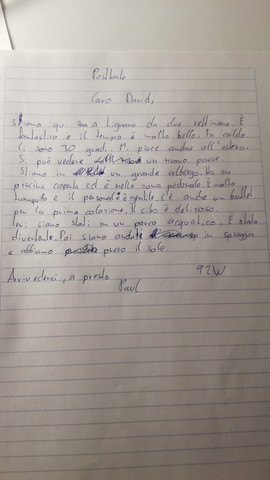 Postkarte
Caro David,
Siamo qui ora a Lignano da due settimane. È
fantastico e il tempo è molto bello. Fa caldo.
Ci sono 30 gradi. Mi piace andare all'estero.
Si può vedere un nuovo paese.
Siamo in un grande albergo. Ha una
piscina coperta ed è nella zona pedonale. È molto
tranquillo e il personale è gentile. C'è anche un buffet
per la prima colazione. Il cibo è delizioso.
Ieri siamo stati in un parco acquatico. È stato
divertente. Poi siamo andati in spiaggia
e abbiamo preso il sole
92W
Arrivederci, a presto
Paul